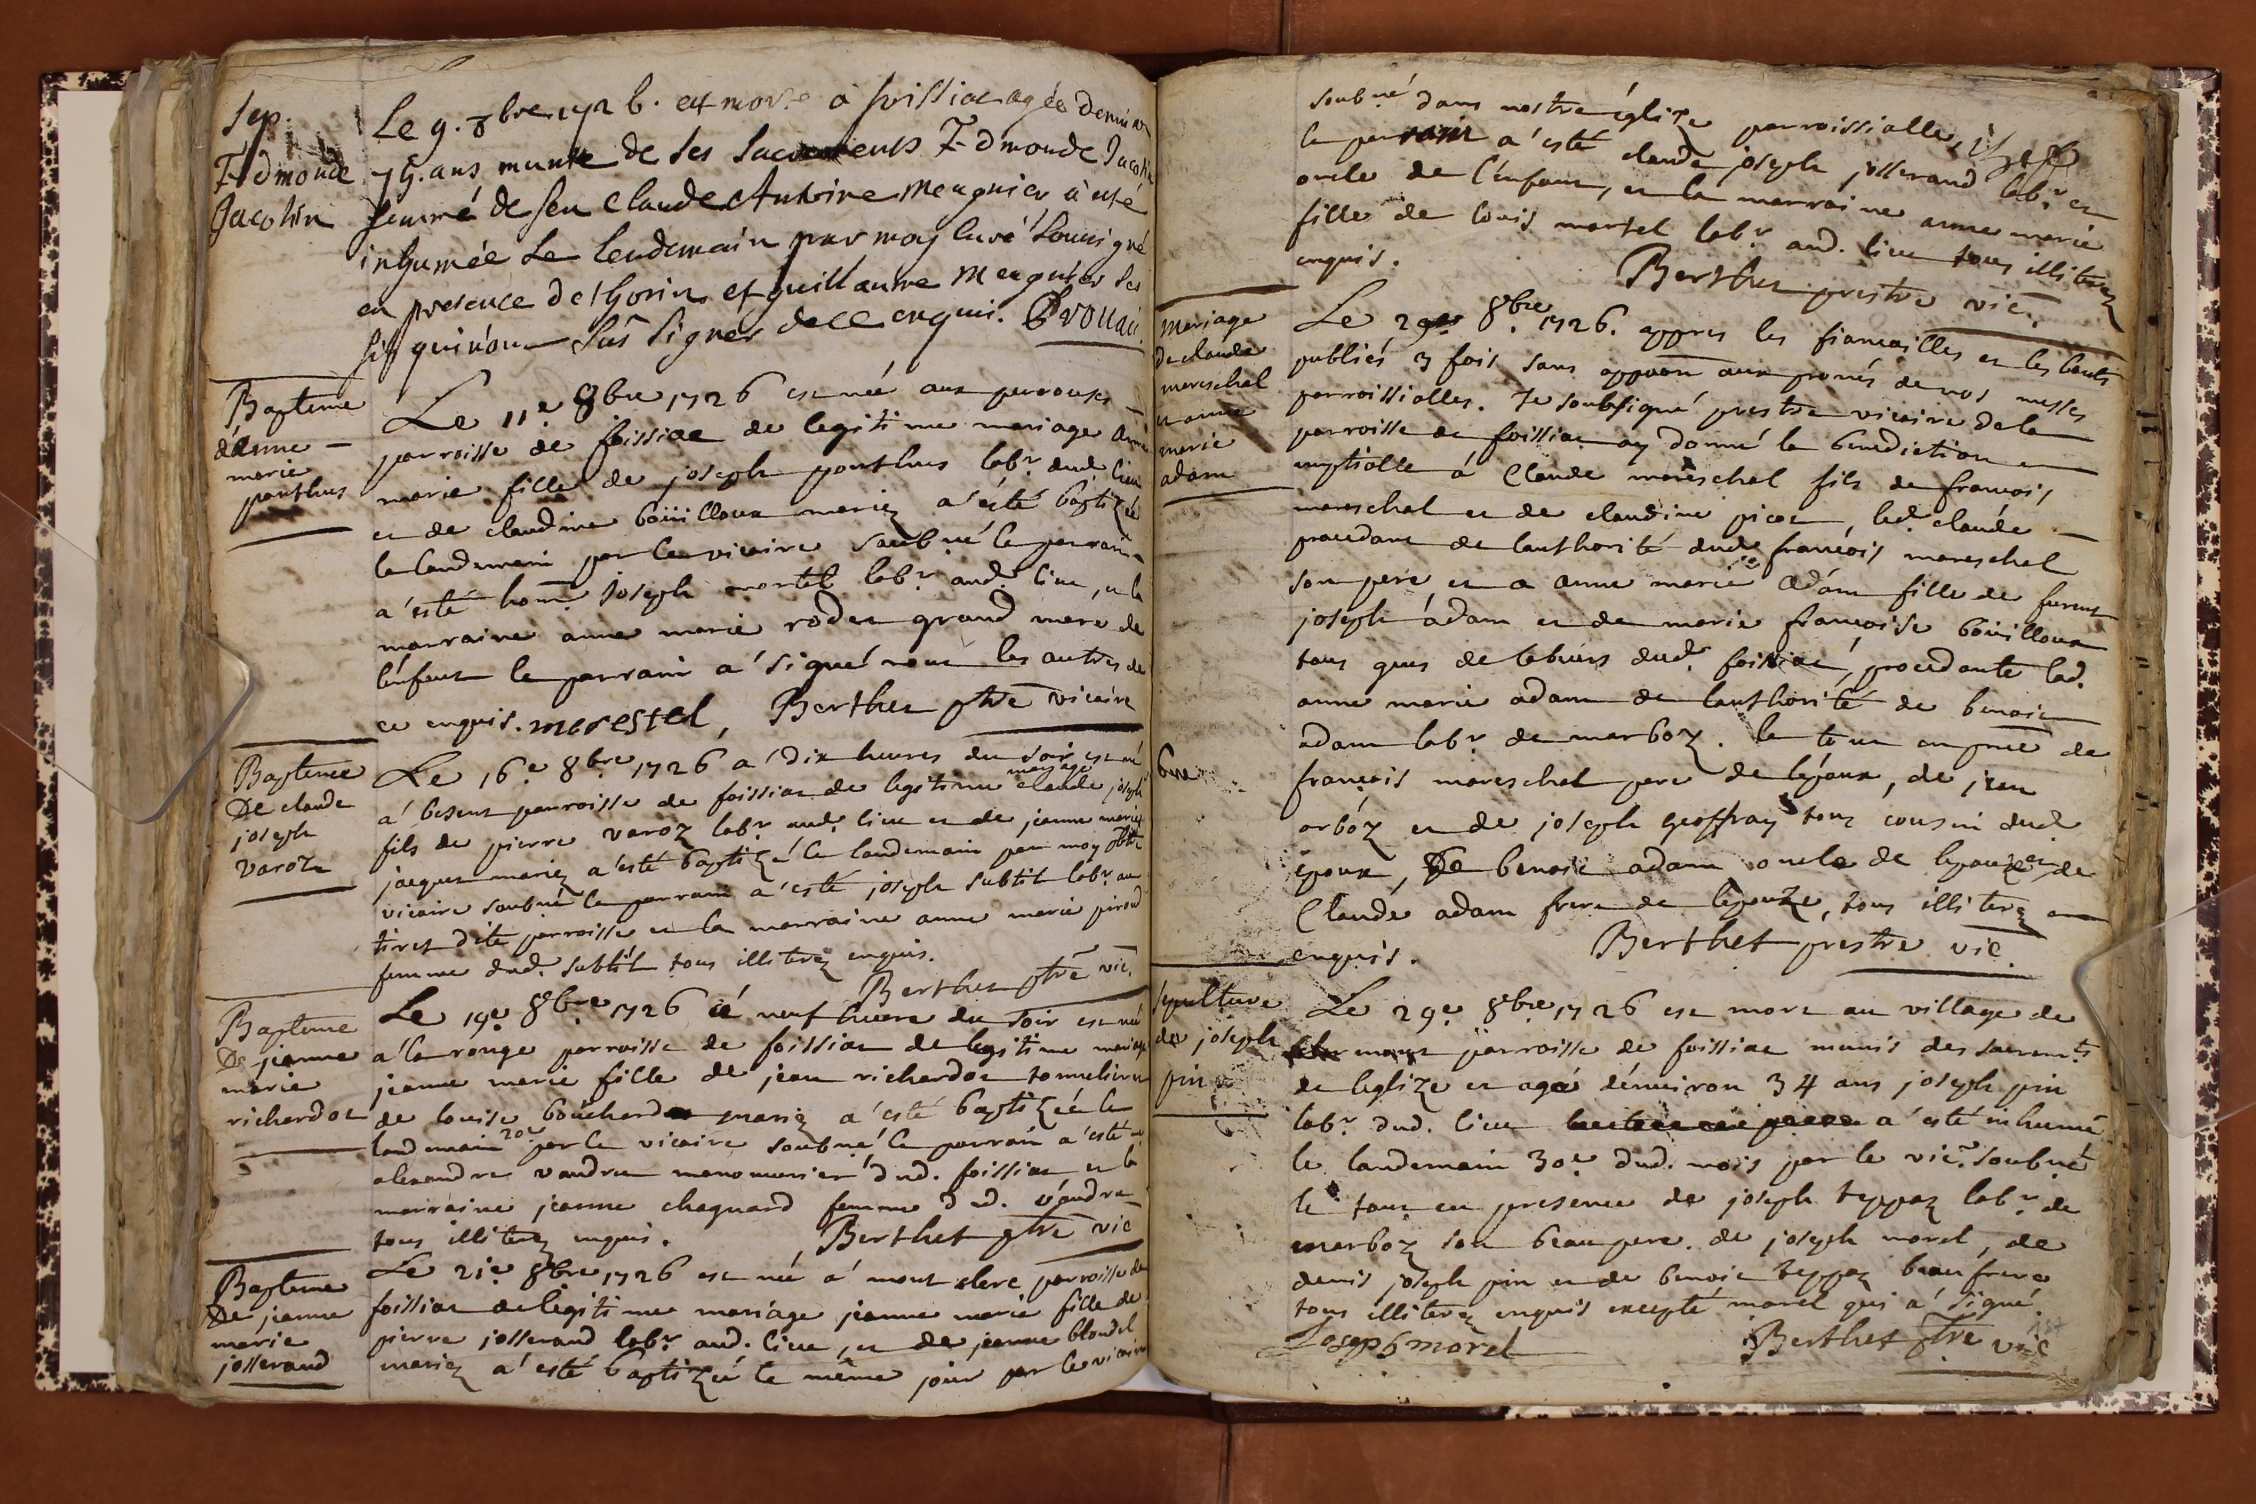 Sep.
Edmonde
Jacolin
Le 9. 8bre 1726. est morte à foissiac agée denviron
75. ans munie de ses Sacrements Edmonde Jacolin
femme de feu Claude Antoine Meugnier à eté
inhumée Le lendemain par moy curé Soussigné
en presence de thorin et guillaume Meugnier ses
fils qui n'ont sû signer de ce enquis.
Bapteme
d'anne
marie
ponthus
Le 11e 8bre 1726 est née aux perouses
parroisse de foissiac de legitime mariage anne
marie fille de joseph ponthus labr dud. lieu
et de claudine boüilloux mariez a esté baptizée
le landemain par le vicaire soubné le parrain
a'esté hom. joseph martel labr aud. lieu, et la
marraine anne marie rodet grand mere de
l'enfant le parrain a' signé non les autres de
ce enquis. marestel, Berthet ptre vicaire
Bapteme
De claude
joseph
varoz
Le 16e 8bre 1726 a' dix heures du soir est né
á besent parroisse de foissiac de legitime mariage claude joseph
fils de pierre varoz labr aud. lieu et de jeanne marie
jacquet mariez a'esté baptizé le landemain par moy ptre
vicaire soubné le parrain a'esté joseph subtil labr au
tiret dite parroisse et la marraine anne marie piroud
femme dud. subtil tous illiterez enquis.
Berthet ptre vic.
Bapteme
De jeanne
marie
richardot
Le 19e 8bre 1726 á neuf heures du soir est née
a' la rouge parroisse de foissiac de legitime mariage
jeanne marie fille de jean richardot tonnelier et
de louise bouchard mariez a'esté baptizée le
landemain 20e par le vicaire soubné le parrain a'esté
alexandre vaudru manouvrier dud. foissiac et la
marraine jeanne chagnard femme dud. vaudru
tous illiterez enquis. Berthet ptre vic
Bapteme
De jeanne
marie
josserand
Le 21e 8bre 1726 est née a' mont clerc parroisse de
foissiac de legitime mariage jeanne marie fille de
pierre josserand labr aud. lieu, et de jeanne blondel
mariez a'esté baptizée le même jour par le vicaire
soubné dans nostre églize parroissialle,
le parrain a'esté claude joseph josserand labr et
oncle de l'enfant, et la marraine anne marie
fille de louis martel labr aud. lieu tous illiterez
enquis. Berthet prestre vic.
Mariage
de claude
mareschal
et anne
marie
adam
Le 29e 8bre 1726. appres les fiancailles et les bants
publiés 3 fois sans oppoon aux pronés de nos messes
parroissialles. Je soubsigné prestre vicaire de la
parroisse de foissiac ay donné la benediction
nuptialle á Claude mareschal fils de francois
mareschal et de claudine picot, led. claude
procedant de lauthorité dud. francois mareschal
son pere, et a anne marie adam fille de furent
joseph adam et de marie françoise boüilloux
tous gens de labeurs dud. foissiac, procedante lad.
anne marie adam de lauthorité de benoit
adam labr de marboz. le tout en pnce de
françois mareschal pere de l'epoux, de jean
arbóz et de joseph geoffray tous cousin dud.
epoux, De benoit adam oncle de lepouze et de
Claude adam frere de lepouze, tous illiterez
enquis. Berthet prestre vic.
Sepulture
de joseph
pin
Le 29e 8bre 1726 est mort au village de
mont parroisse de foissiac munis des sacremts
de leglize et agé dénviron 34 ans joseph pin
labr dud. lieu a'esté inhumé
le landemain 30e dud. mois par le vic. soubné
le tout en presence de joseph teppaz labr de
marboz son beaupere. de joseph morel, de
denis joseph pin et de benoit teppaz beaufrere
tous illiterez enquis excepté morel qui a' signé.
Joseph morel Berthet ptre vic